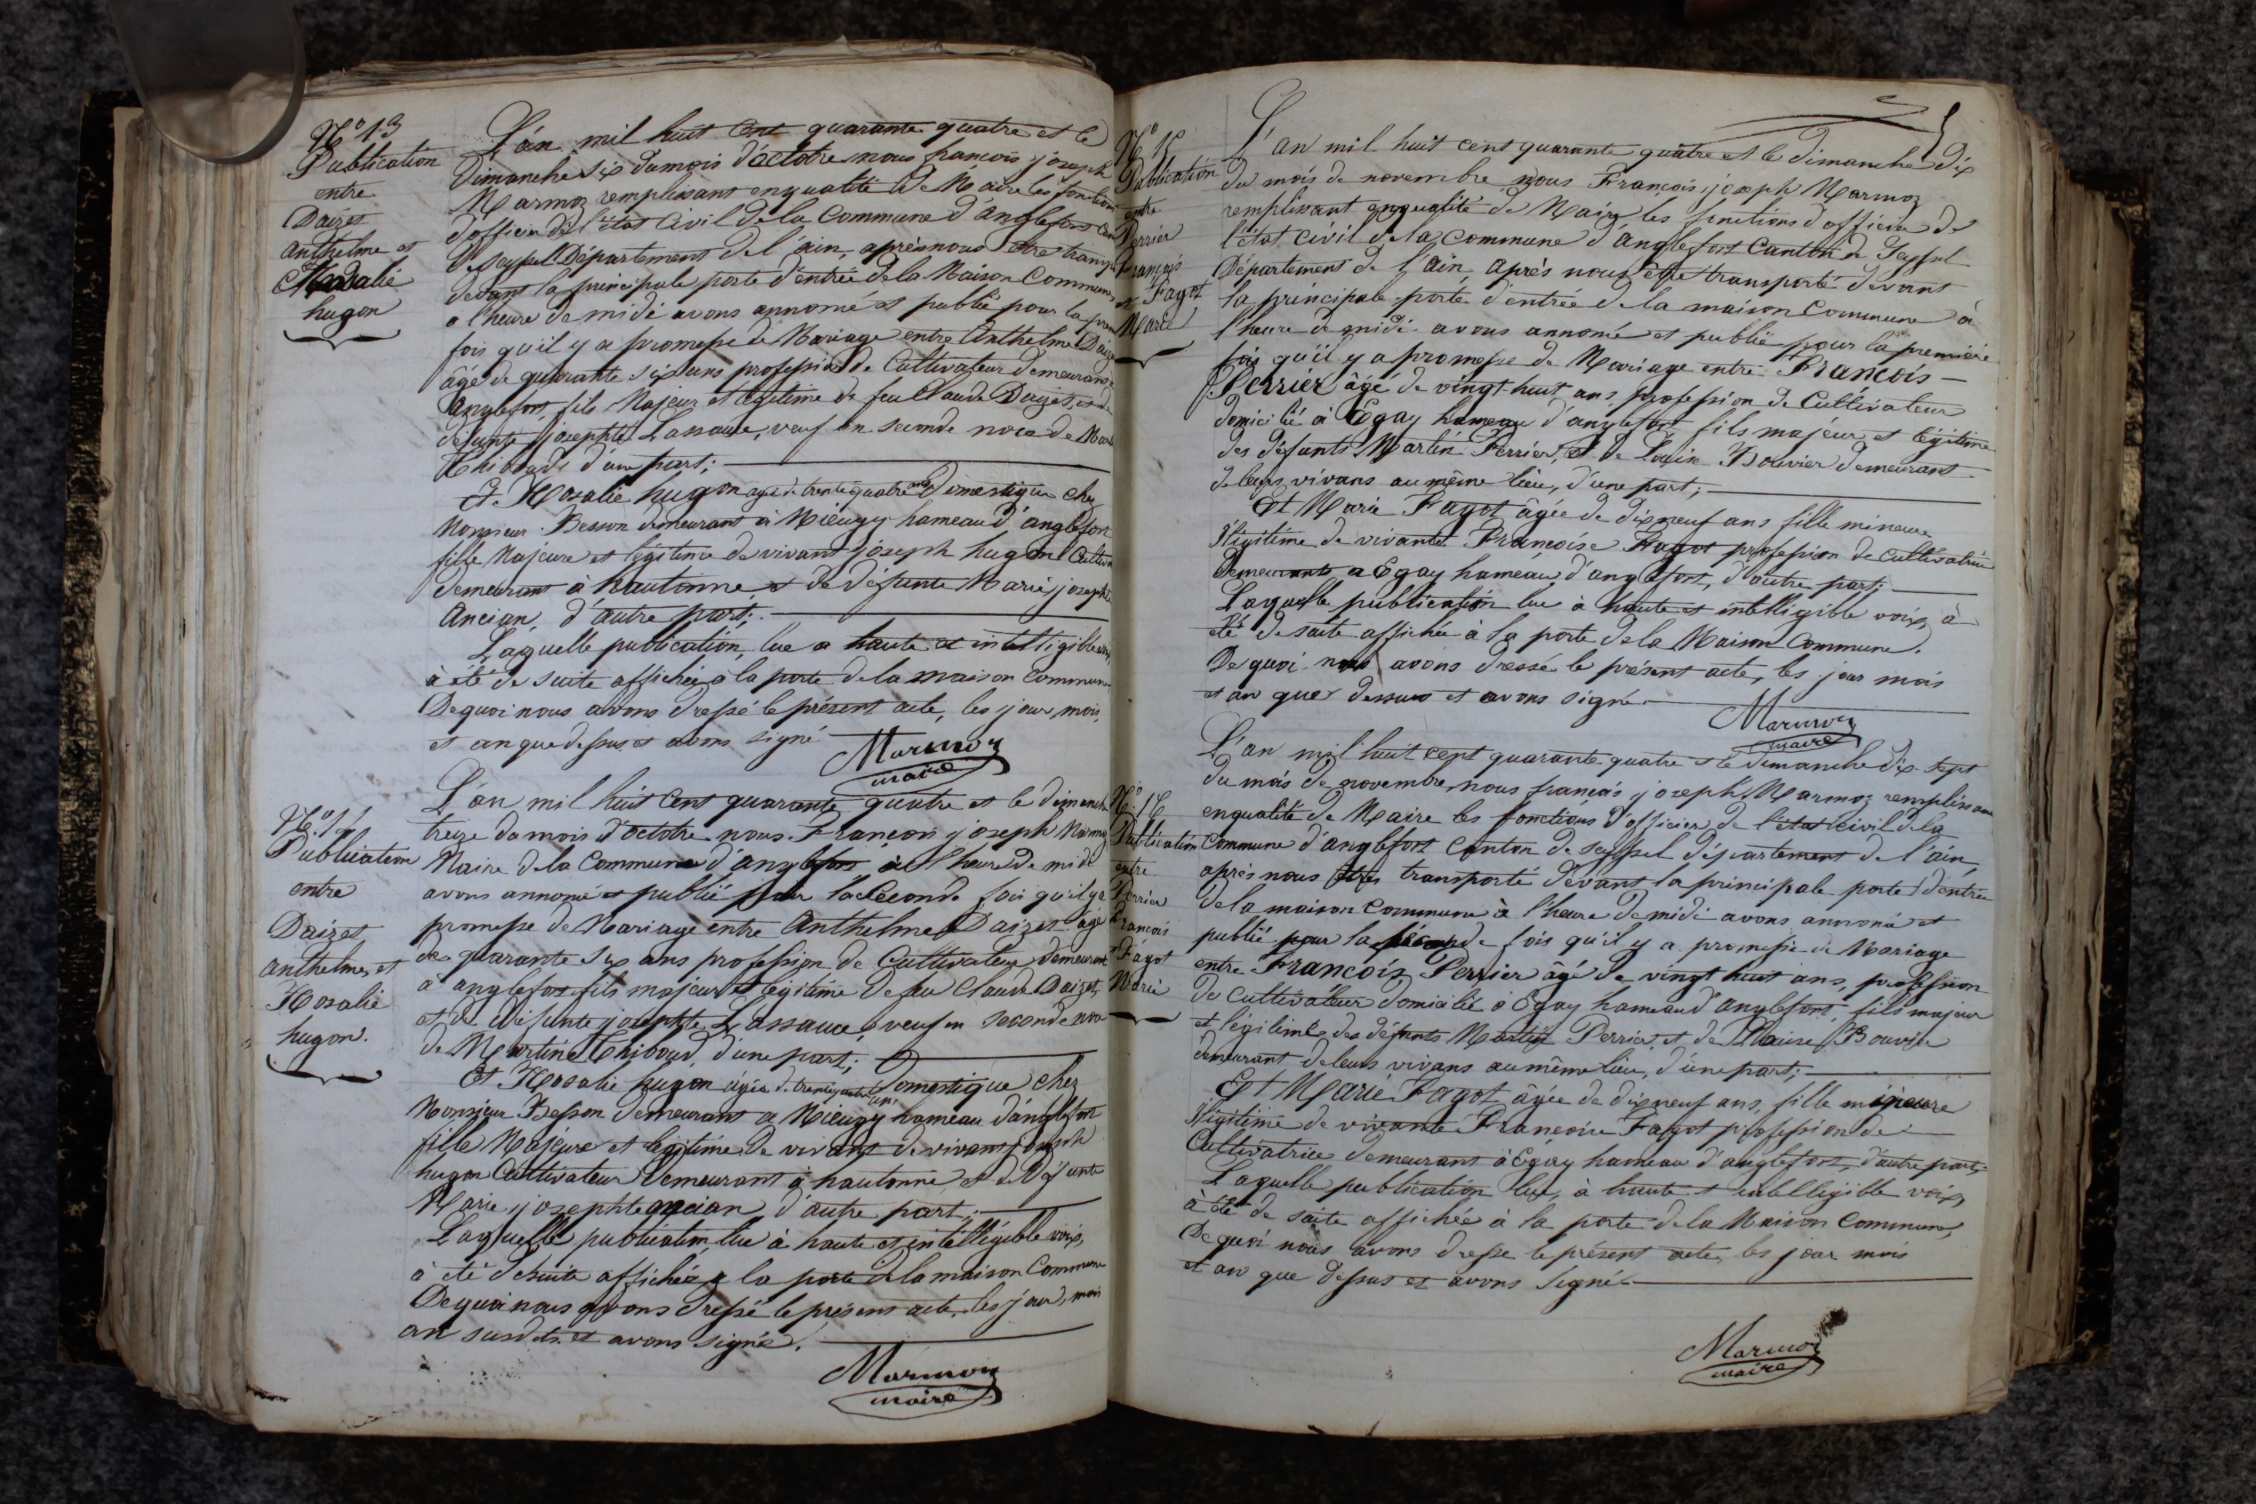 N.o 13
Publication
entre
Daizet
anthelme et
Rosalie
hugon
L'an mil huit cent quarante quatre et le
dimanche six du mois d'octobre nous françois joseph
Marmoz remplissant en qualité de Maire les fonctions
d'officier de l'état Civil de la Commune d'anglefort
de seyssel Département de l'ain, après nous être
devant la principale porte d'entrée de la Maison Commune,
a l'heure de midi avons annoncé et publié pour la
fois qu'il y a promesse de Mariage entre Anthelme Daizet
âgé de quarante six ans profession de Cultivateur demeurant
anglefort, fils Majeur et légitime de feu Claude Daizet, et de
défunte josephte Lassauce, veuf en seconde noce de
Thiboud d'une part;
Et Rosalie hugon agée de trente quatre ans Domestique chez
Monsieur Besson demeurant à Mieugy hameau d'anglefort
fille Majeure et légitime de vivant joseph hugon
demeurant à hautonne et de défunte Marie josephte
Ancian, d'autre part;
Laquelle publication, lue a haute et intelligible voix,
à été de suite affichée à la porte de la maison commune
De quoi nous avons dressé le présent acte, les jour, mois,
et an que dessus et avons signé
Marmoz
maire
N.o 14
Publication
entre
Daizet
anthelme, et
Rosalie
hugon.
L'an mil huit cent quarante quatre et le dimanche
treize du mois d'octobre nous François joseph Marmoz
Maire de la Commune d'anglefort à l'heure de midi
avons annoncé et publié pour la seconde fois qu'il y a
promesse de Mariage entre Anthelme Daizet âgé
de quarante six ans profession de Cultivateur demeurant
a anglefort fils majeur et légitime de feu Claude Daizet,
et de défunte josephte Lassauce, veuf en seconde
de Martine Thiboud, d'une part;
Et Rosalie hugon agée de trente quatre ans Domestique chez
Monsieur Besson demeurant a Mieugy hameau d'anglefort
fille Majeure et légitime de vivant de vivant joseph
hugon Cultivateur demeurant à hautonne et de défunte
Marie josephte ancian d'autre part;
Laquelle publication lue à haute et intelligible voix,
à été de suite affichée à la porte de la maison Commune
De quoi nous avons dressé le présent acte, les jour, mois
an susdits et avons signé.
Marmoz
maire
N.o 15
Publication
entre
Perrier
François
et Fagot
Marie
L'an mil huit cent quarante quatre et le dimanche dix
du mois de novembre nous François joseph Marmoz
remplissant en qualité de Maire les fonctions d'officier de
l'état civil de la commune d'anglefort Canton de Seyssel
Département de l'ain après nous être transporté devant
la principale porte d'entrée de la maison commune à
l'heure de midi avons annoncé et publié pour la première
fois qu'il y a promesse de Mariage entre François
Perrier âgé de vingt huit ans, profession de Cultivateur
domicilié à Egay hameau d'anglefort fils majeur et légitime
des défunts Martin Perrier, et de Louise Bouvier demeurant
de leurs vivans au même lieu, d'une part;
Et Marie Fagot âgée de dix neuf ans fille mineure
illigitime de vivante Françoise Fagot profession de Cultivatrice
demeurante a Egay hameau d'anglefort, d'autre part;
Laquelle publication lue à haute et intelligible voix, à
été de suite affichée à la porte de la Maison Commune.
De quoi nous avons dressé le présent acte, les jour mois
et an que dessus et avons signé
Marmoz
maire
N.o 16
Publication
entre
Perrier
François
et Fagot
Marie
L'an mil huit cent quarante quatre et le dimanche dix sept
du mois de novembre, nous françois joseph Marmoz remplissant
en qualité de Maire les fonctions d'officier de l'état civil de la
commune d'anglefort Canton de seyssel département de l'ain,
après nous être transporté devant la principale porte d'entrée
de la maison commune à l'heure de midi avons annoncé et
publié pour la seconde fois qu'il y a promesse de Mariage
entre François Perrier âgé de vingt huit ans, profession
de cultivateur domicilié à Egay hameau d'anglefort, fils majeur
et légitime des défunts Martin Perrier, et de Louise Bouvier
demeurant de leurs vivans au même lieu, d'une part;
Et Marie Fagot âgée de dix neuf ans, fille mineure
illigitime de vivante Françoise Fagot profession de
Cultivatrice demeurant à Egay hameau d'anglefort, d'autre part;
Laquelle publication lue, à haute et intelligible voix,
à été de suite affichée à la porte de la Maison Commune,
De quoi nous avons dressé le présent acte, les jour mois
et an que dessus et avons signé
Marmoz
maire